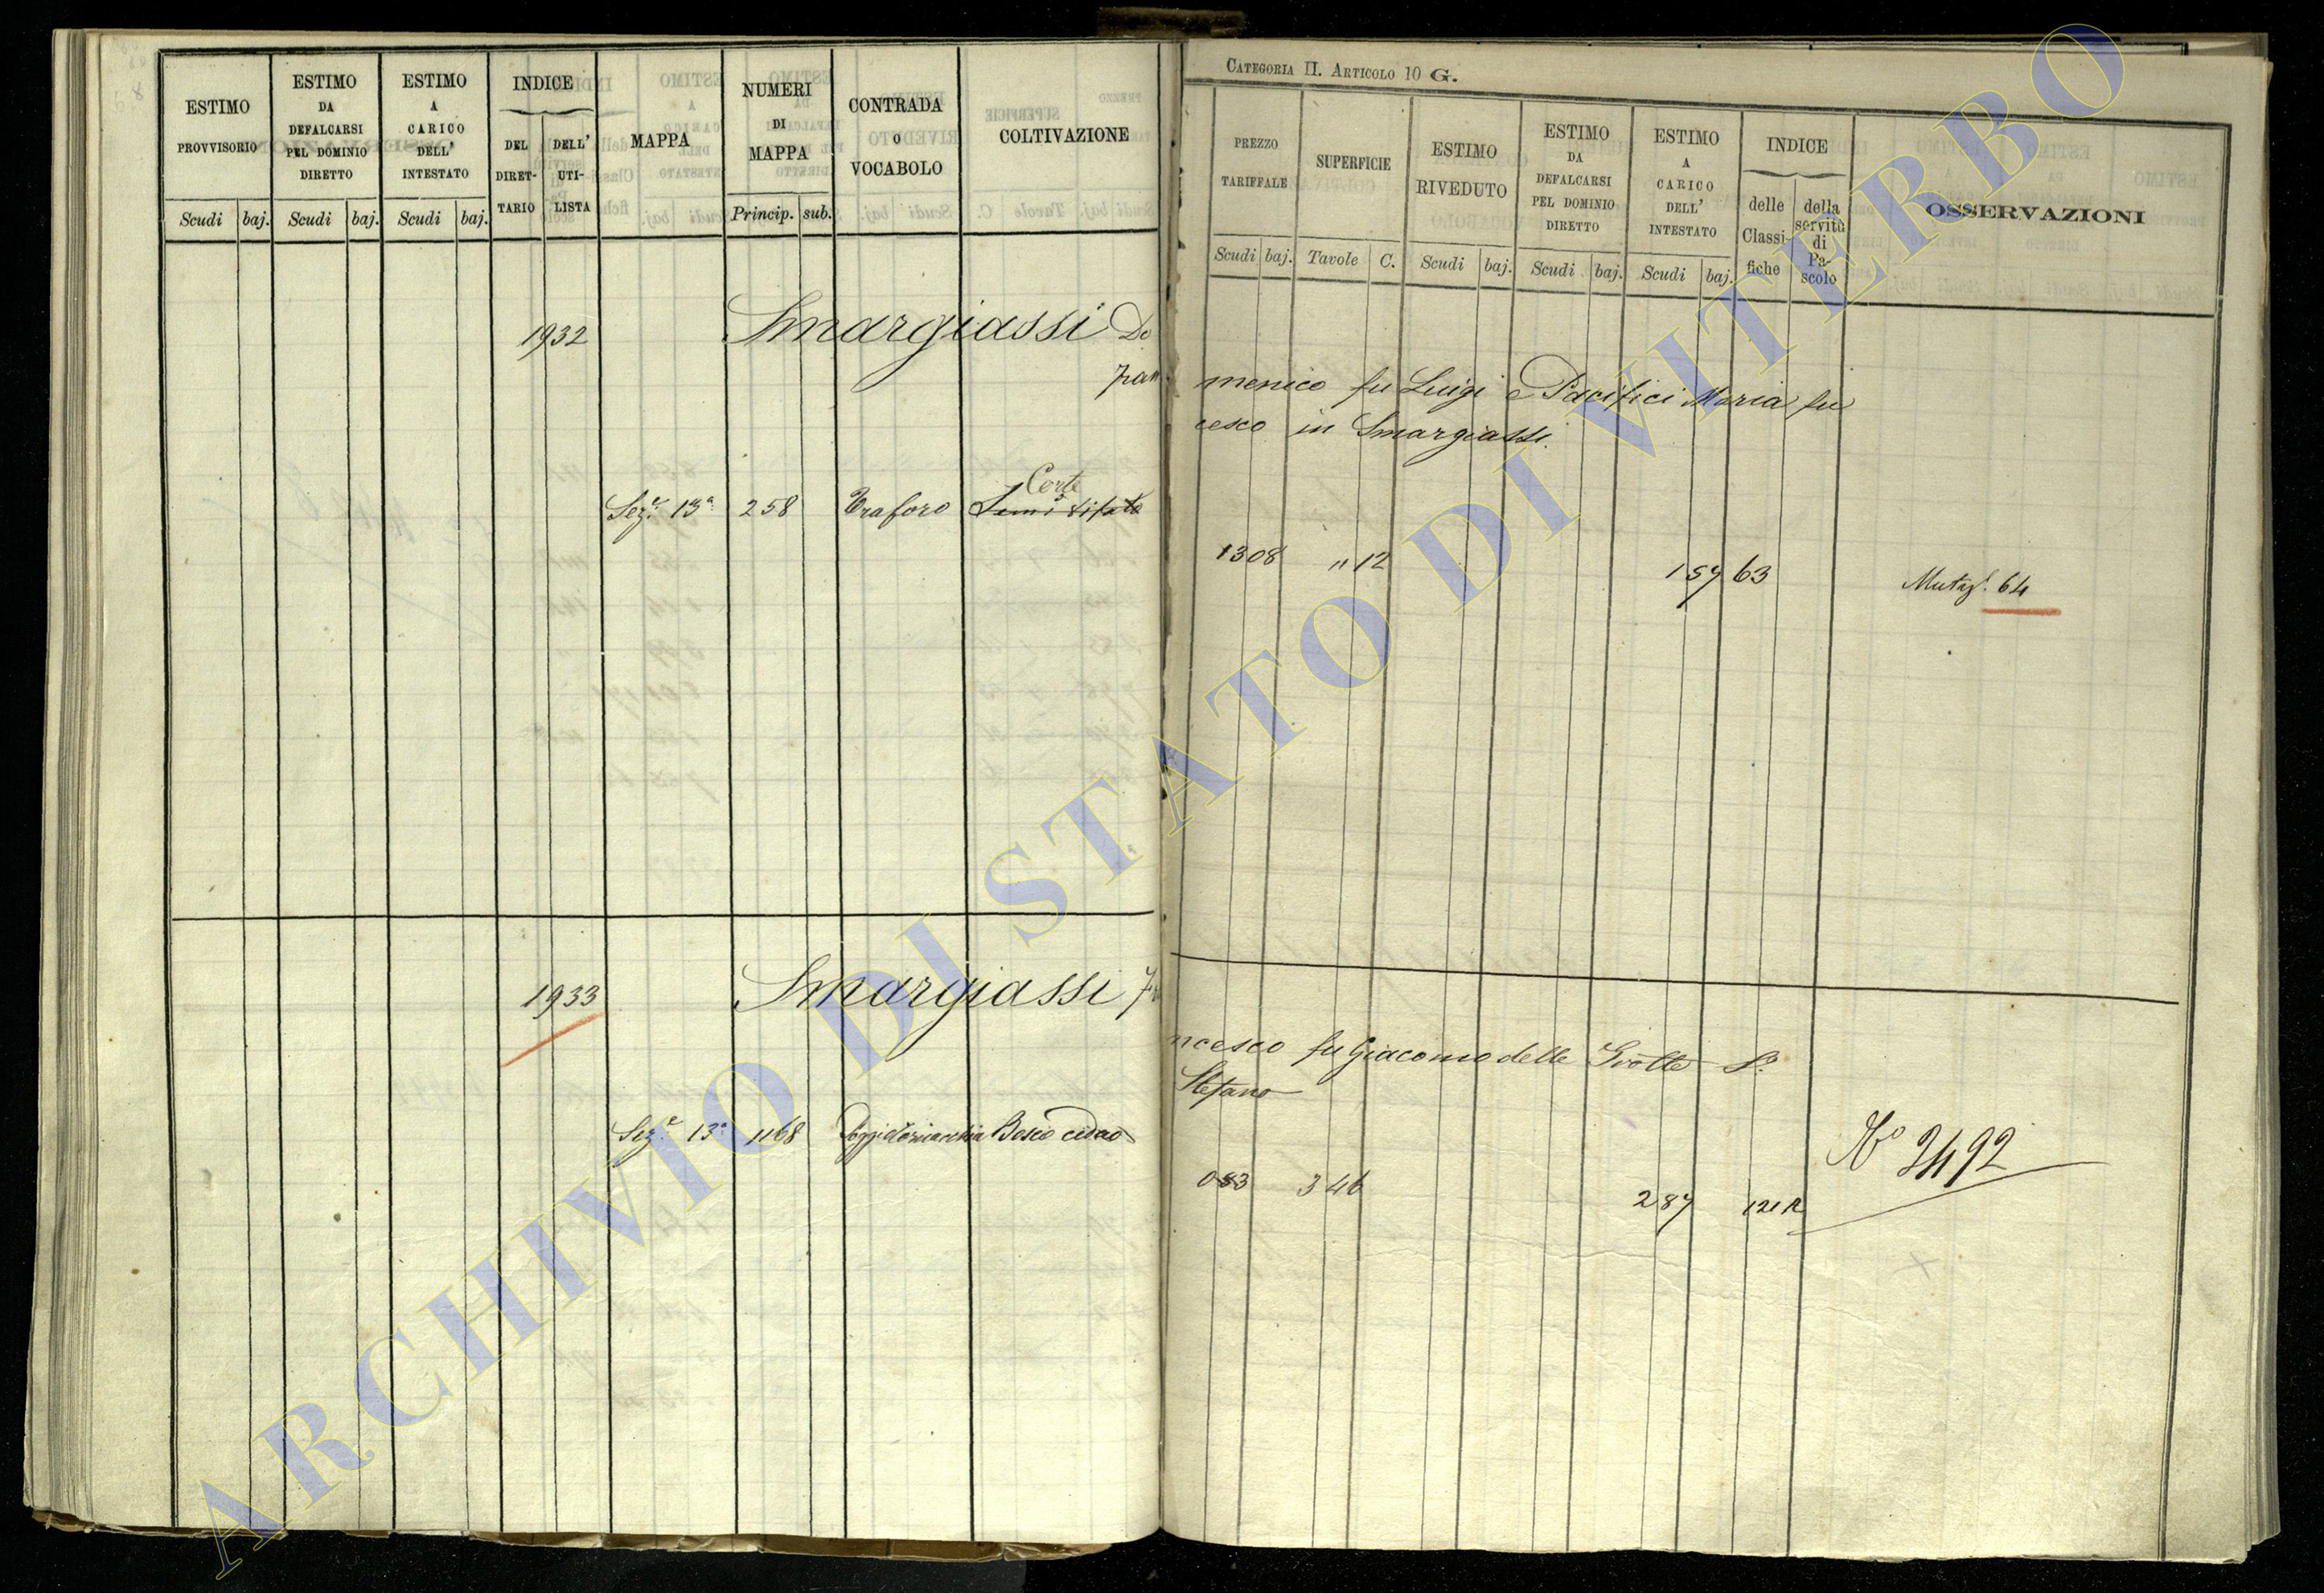 CATEGORIA II. ARTICOLO 10 G.
ESTIMO PROVVISORIO
Scudi baj.
ESTIMO DA DEFALCARSI PEL DOMINIO DIRETTO
Scudi baj.
ESTIMO A CARICO DELL' INTESTATO
Scudi baj.
INDICE
DEL DIRET-TARIO
DELL' UTI-LISTA
MAPPA
NUMERI DI MAPPA
Princip. sub.
CONTRADA O VOCABOLO
COLTIVAZIONE
PREZZO TARIFFALE
Scudi baj.
SUPERFICIE
Tavole C.
ESTIMO RIVEDUTO
Scudi baj.
ESTIMO DA DEFALCARSI PEL DOMINIO DIRETTO
Scudi baj.
ESTIMO A CARICO DELL' INTESTATO
Scudi baj.
INDICE
delle Classi-fiche
della servitù di Pa-scolo
OSSERVAZIONI
1932 Smargiassi Domenico fu Luigi e Pacifici Maria fu
Francesco in Smargiassi
Corte
Sez.e 13a 258 Traforo 1308 " 12 157 63 Mutaz. 64
1933 Smargiassi Francesco fu Giacomo delle Grotte S.
Stefano
Sez.e 13a 1168 Bosco ceduo 083 3 46 2 87 121 R
No 2492
ARCHIVIO DI STATO DI VITERBO